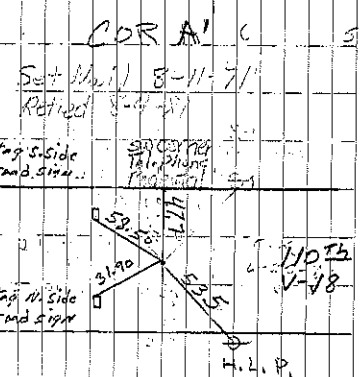 COR A' C
Set Nail 8-11-71
Retied 8-4-81
Tag S. Side
and sign
SE Corner
Telephone
Pedestal
47.7
58.50
31.90
53.5
110 Th
V-18
Tag N. Side
and sign
H.L.P.